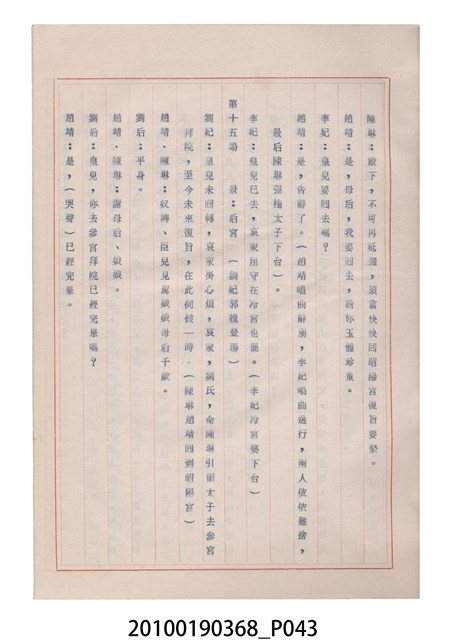 陳琳：殿下，不可再延遲，須當快快回昭陽宮復旨要緊。
趙靖：是，母后，我要回去，前你玉體珍重。
李妃：皇兒要回去嗎？
趙靖：是，告辭了。（趙靖唱曲辭別，李妃唱曲送行，兩人依依難捨，
最后陳琳強拖太子下台）。
李妃：皇兒已去，哀家退守在冷宮也罷。（李妃冷宮婆下台）
第十五場　景：后宮（劉妃郭槐登場）
劉妃：皇兒未回轉，哀家掛心煩，哀家，劉氏，命陳琳引領太子去參宮
拜院，至今未來復旨，在此伺候一時。（陳琳趙靖回到昭陽宮）
趙靖．陳琳：奴婢、臣兒見駕娘娘母后千歲。
劉后：平身。
趙靖．陳琳：謝母后、娘娘。
劉后：皇兒，你去參宮拜院已經完畢嗎？
趙靖：是，（哭聲）已經完畢。
20100190368_P043